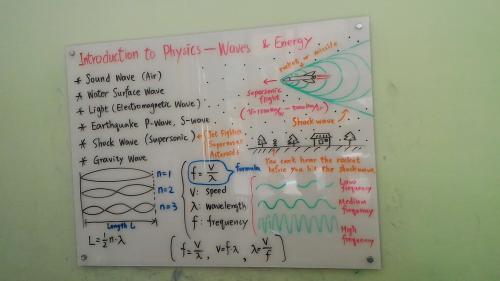 Introduction to Physics — Waves & Energy
* Sound Wave (Air)
* Water Surface Wave
* Light (Electromagnetic Wave)
* Earthquake P-Wave, S-wave
* Shock Wave (Supersonic)
Jet Fighter
Supernovae
Asteroids
* Gravity Wave
rocket or missile
Supersonic flight
Shock wave
You can't hear the rocket
before you hit the shockwave
n=1
n=2
n=3
Length L
L=½n·λ
f = V/λ
formula
V: speed
λ: wavelength
f: frequency
Low frequency
Medium frequency
High frequency
(f=V/λ, V=f·λ, λ=V/f)